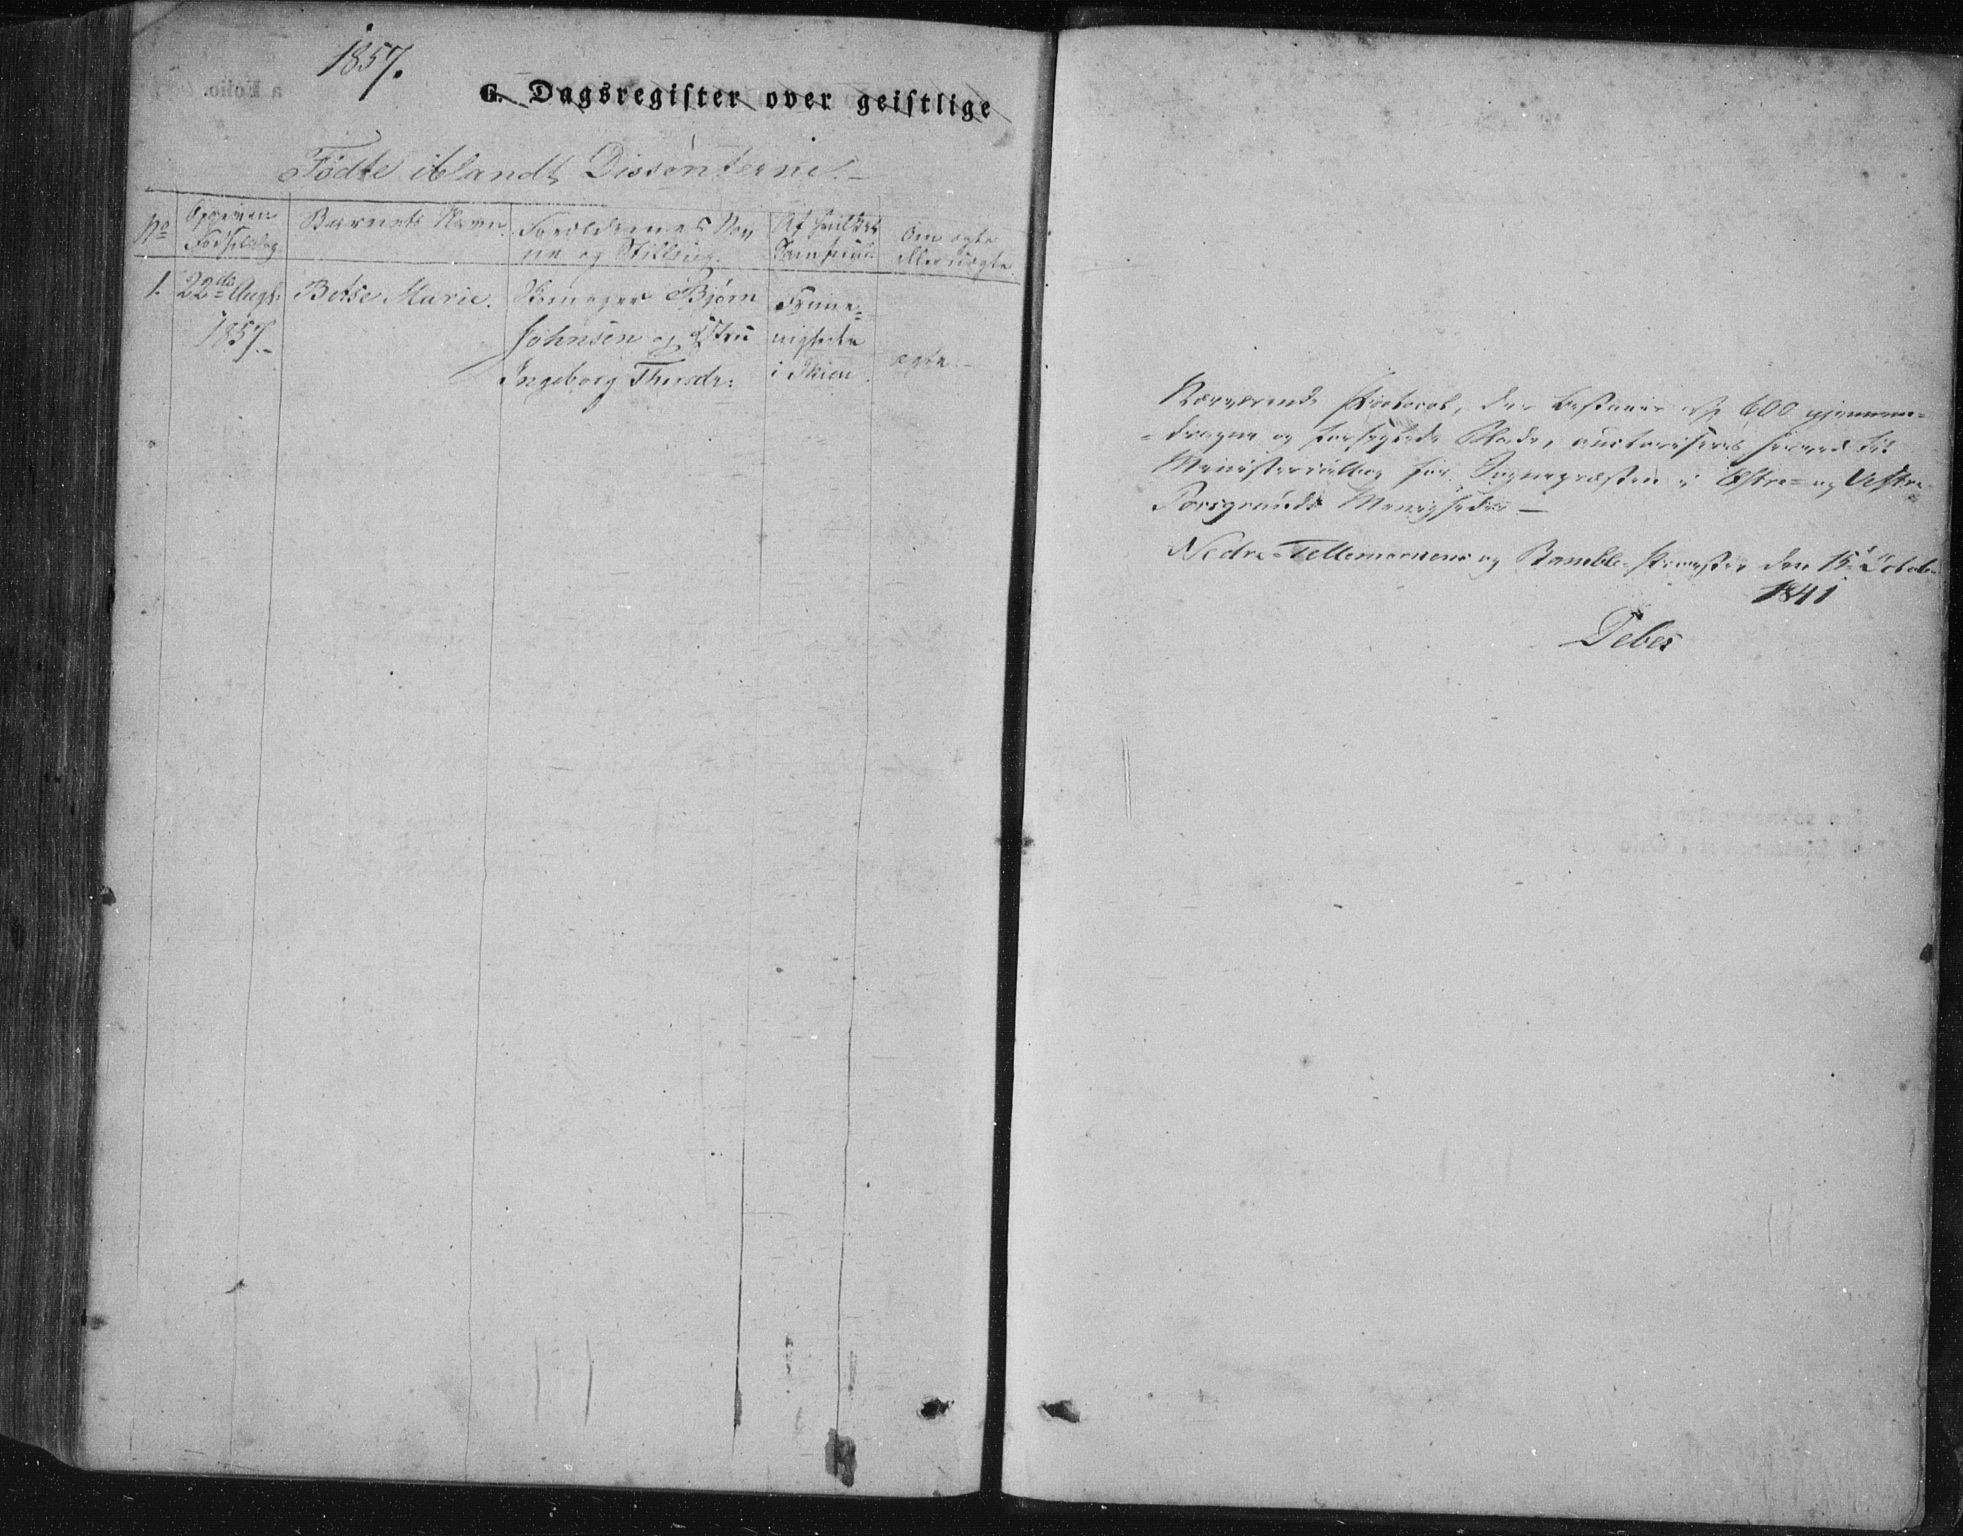 1857.
G. Dagsregister over geistlige
Fødte iblandt Dissenterne.
No
Opgiven Fødselsdag
Barnets Navn.
Forældrenes Navne og Stilling.
Af hvilket Samfund
Om ægte eller uægte.
1. 22de Augt. 1857.
Betse Marie.
Skomager Bjørn
Johnsen og Hstru
Ingeborg Thorsdr:
Frime=
nighede
i Skien
ægte.
Nærværende Protocol, der bestaaer af 600 gjennem=
=dragne og forseglede Blade, auctoriseres herved til
Ministerialbog for Sognepræsten i Østre= og Vestre=
Porsgrunds Menigheder
Nedre=Tellemarkens og Bamble Provstie den 15de October
1841
Debes
a Folio.